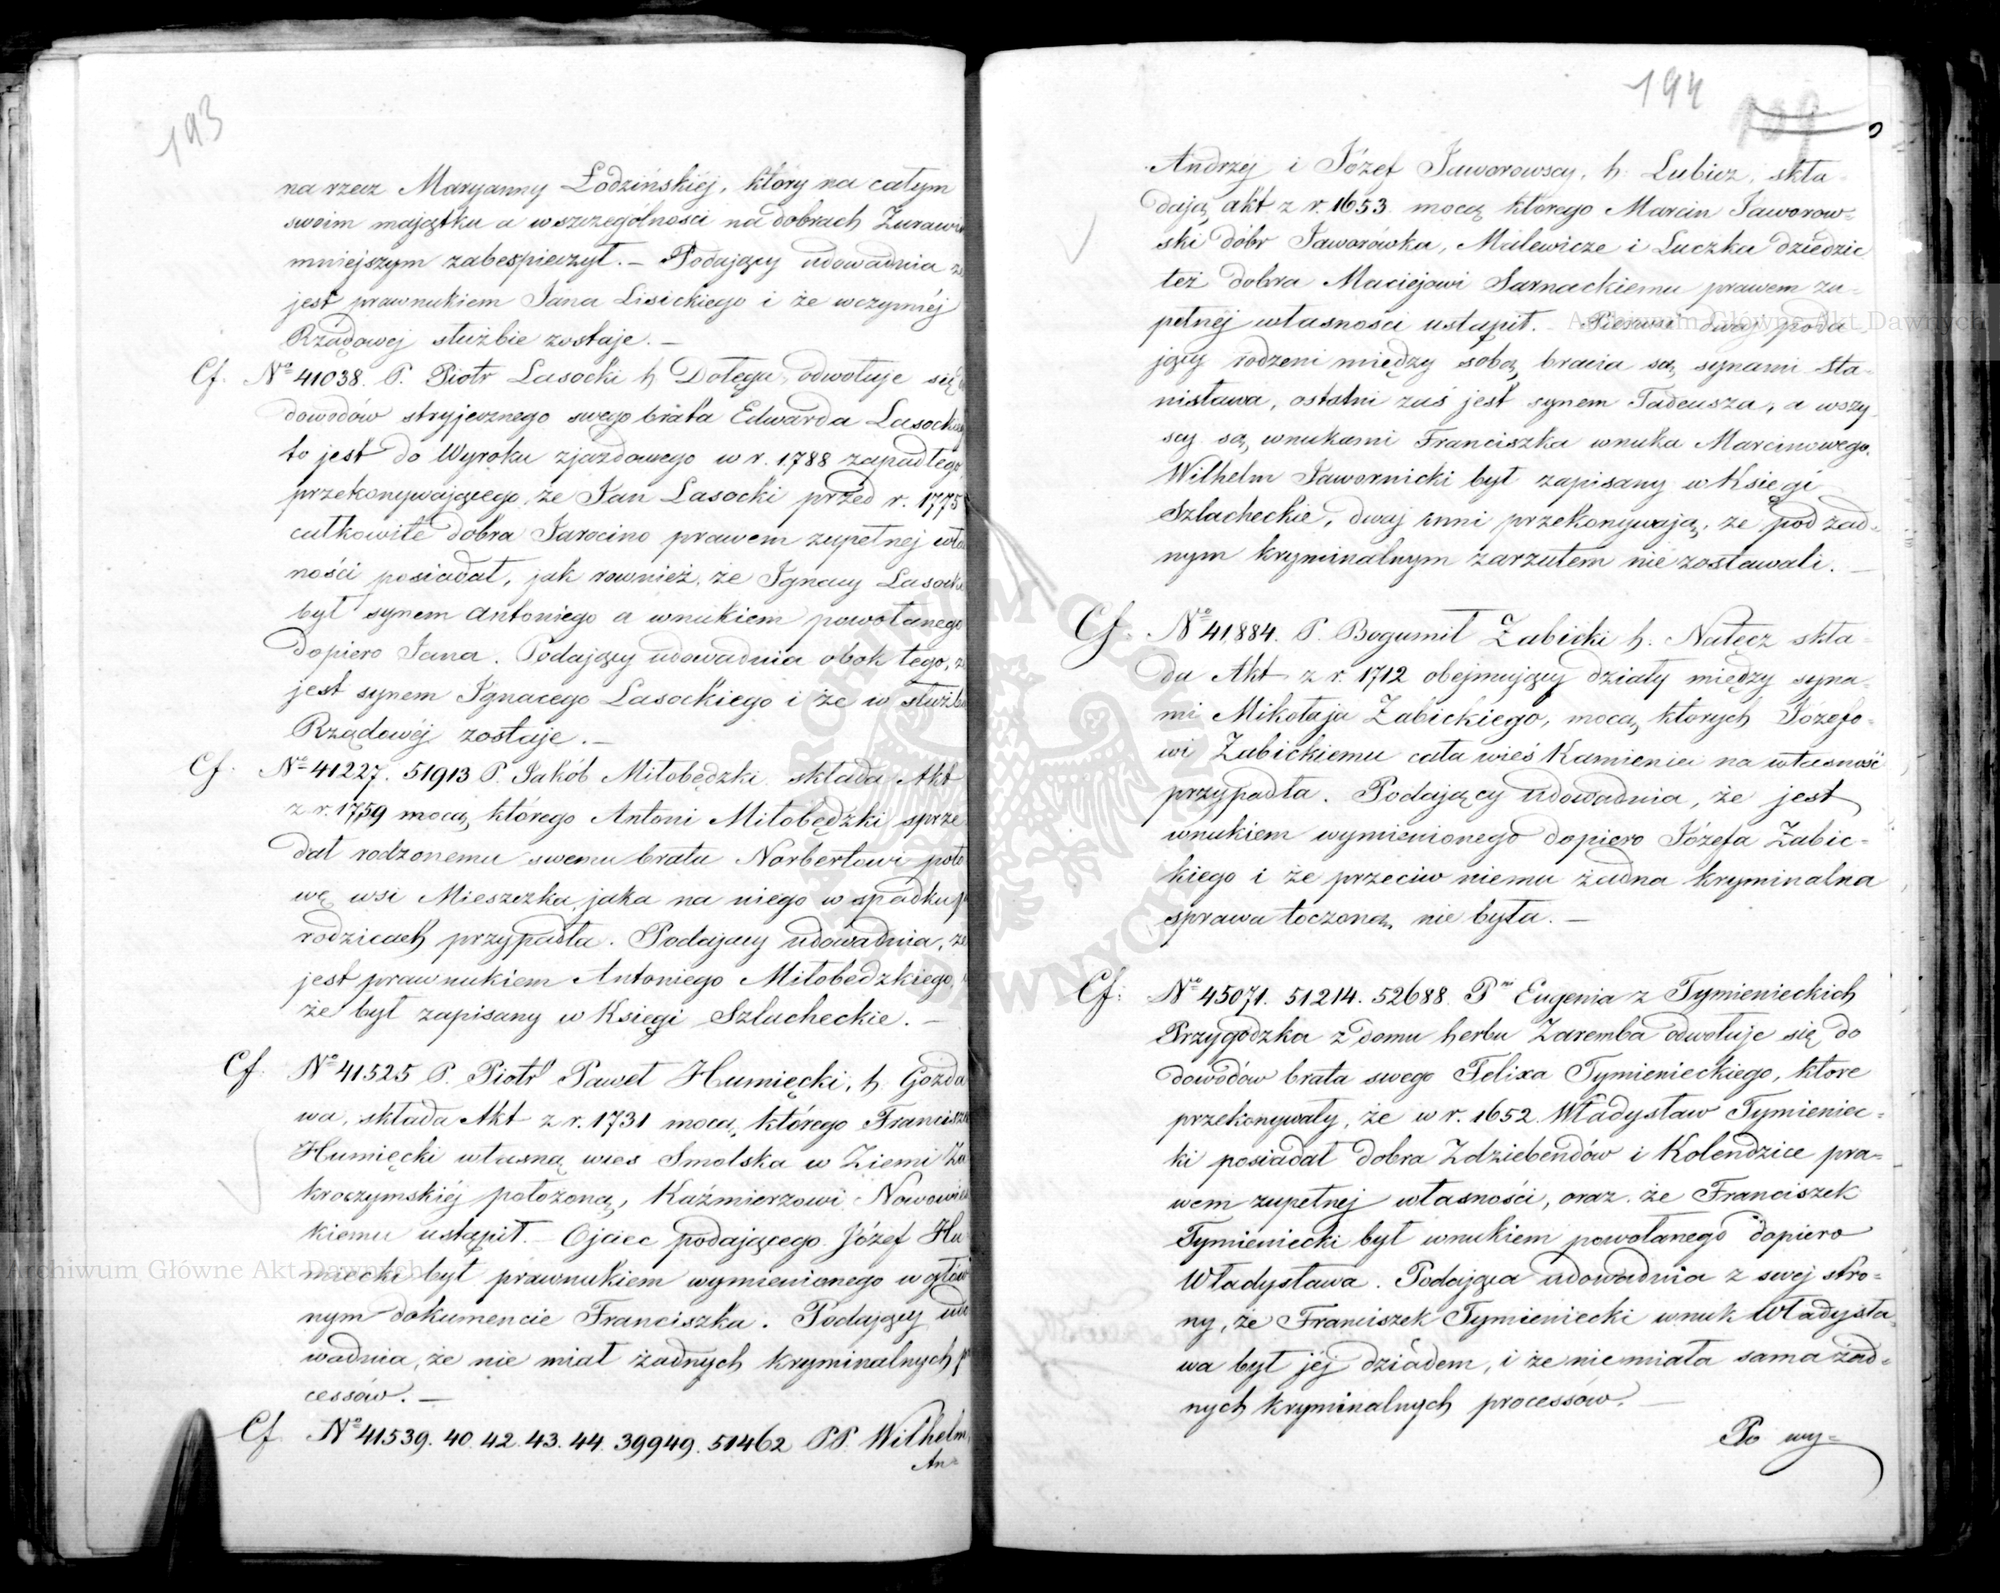 193
na rzecz Maryanny Łodzińskiej, który na całym
swoim majątku a wszczególności na dobrach Żuraw
mniejszym zabespieczył. — Podający udowadnia że
jest prawnukiem Jana Lisickiego i że wczynnéj
Rządowej służbie zostaje. —
Cf. No 41038. P. Piotr Lasocki h. Dołęga odwołuje się
dowodów stryjecznego swego brata Edwarda Lasocki
to jest do Wyroku zjazdowego w r. 1788 zapadłego
przekonywającego, że Jan Lasocki przed r. 1775
całkowite dobra Jarocino prawem zupełnej wła
ności posiadał, jak rownież, że Ignacy Lasocki
był synem Antoniego a wnukiem powołanego
dopiero Jana. Podający udowadnia obok tego, że
jest synem Ignacego Lasockiego i że w służb
Rządowéj zostaje. —
Cf. No 41227. 51913 P. Jakób Miłobędzki składa Akt
z r. 1759 mocą którego Antoni Miłobędzki sprze
dał rodzonemu swemu bratu Norbertowi poło
wę wsi Mieszczka, jaka na niego w spadku p
rodzicach przypadła. Podający udowadnia, że
jest prawnukiem Antoniego Miłobedzkiego,
że był zapisany w Księgi Szlacheckie. —
Cf. No 41525 P. Piotr Paweł Humięcki, h. Gozda
wa, składa Akt z r. 1731 mocą którego Francisze
Humięcki własną wieś Smolska w Ziemi Za
kroczymskiéj położoną, Kaźmierzowi Nowowiej
kiemu ustąpił. — Ojciec podającego Józef Hu
miecki był prawnukiem wymienionego w głów
nym dokumencie Franciszka. Podający udo
wadnia, że nie miał żadnych kryminalnych pr
cessów. —
Cf. No 41539. 40. 42. 43. 44. 39949. 51462 PP. Wilhelm,
An=
194
Andrzéj i Józef Jaworowscy, h. Lubicz, skła=
dają akt z r. 1653 mocą którego Marcin Jaworow=
ski dóbr Jaworówka, Malewicze i Łuczka dziedzic
też dobra Maciejowi Sarnackiemu prawem zu=
pełnej własności ustąpił. — Pierwsi dwaj poda
jący rodzeni między sobą bracia są synami Sta=
nisława, ostatni zaś jest synem Tadeusza, a wszy
scy są wnukami Franciszka wnuka Marcinowego.
Wilhelm Jawornicki był zapisany w Księgi
Szlacheckie, dwaj inni przekonywają, że pod żad=
nym kryminalnym zarzutem nie zostawali. —
Cf. No 41,884. P. Bogumił Żabicki h. Nałęcz skła=
da Akt z r. 1712 obejmujący działy między syna=
mi Mikołaja Żabickiego, mocą których Józefo=
wi Żabickiemu cała wieś Kamieniec na własność
przypadła. Podający udowadnia, że jest
wnukiem wymienionego dopiero Józefa Żabic=
kiego i że przeciw niemu żadna kryminalna
sprawa toczoną nie była. —
Cf. No 45071. 51214. 52688. Pni Eugenia z Tymienieckich
Przygodzka z domu herbu Zaremba odwołuje się do
dowodów brata swego Felixa Tymienieckiego, które
przekonywały, że w r. 1652 Władysław Tymieniec=
ki posiadał dobra Zdziebendów i Kolendzice pra=
wem zupełnej własności, oraz że Franciszek
Tymieniecki był wnukiem powołanego dopiero
Władysława. Podająca udowadnia z swej stro=
ny, że Franciszek Tymieniecki wnuk Władysła
wa był jéj dziadem, i że nie miała sama żad=
nych kryminalnych processów. —
Po wy=
Archiwum Główne Akt Dawnych
Archiwum Główne Akt Dawnych
ARCHIWUM GŁÓWNE AKT DAWNYCH